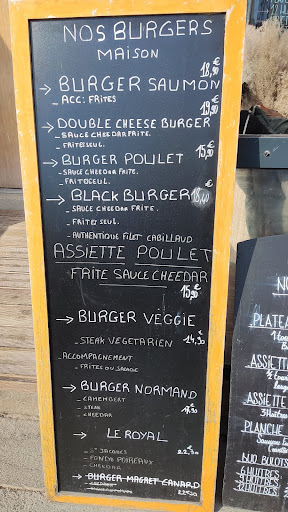 NOS BURGERS
MAISON
18,90 €
→ BURGER SAUMON
- ACC: FRITES
19,90 €
→ DOUBLE CHEESE BURGER
- SAUCE CHEEDAR FRITE.
- FRITE SEUL.
15,90 €
→ BURGER POULET
- SAUCE CHEEDAR FRITE.
- FRITE SEUL
→ BLACK BURGER 18,40 €
- SAUCE CHEEDAR FRITE.
- FRITE SEUL.
- AUTHENTIQUE FILET CABILLAUD
ASSIETTE POULET
FRITE SAUCE CHEEDAR
15,90 €
→ BURGER VÉGGIE
- STEAK VEGETARIEN 14,90 €
- ACCOMPAGNEMENT
- FRITES OU SALADE
→ BURGER NORMAND
- CAMEMBERT
- STEAK
- CHEEDAR
→ LE ROYAL
- ST JACQUES 22,50
- FONDU POIREAUX
- CHEEDAR
→ BURGER MAGRET CANARD
22,50
NOS
PLATEA
ASSIETT
ASSIETTE
3 Huitres
PLANCHE
DUO BULOTS
6 HUITRES
9 HUITRES
12 HUITRES